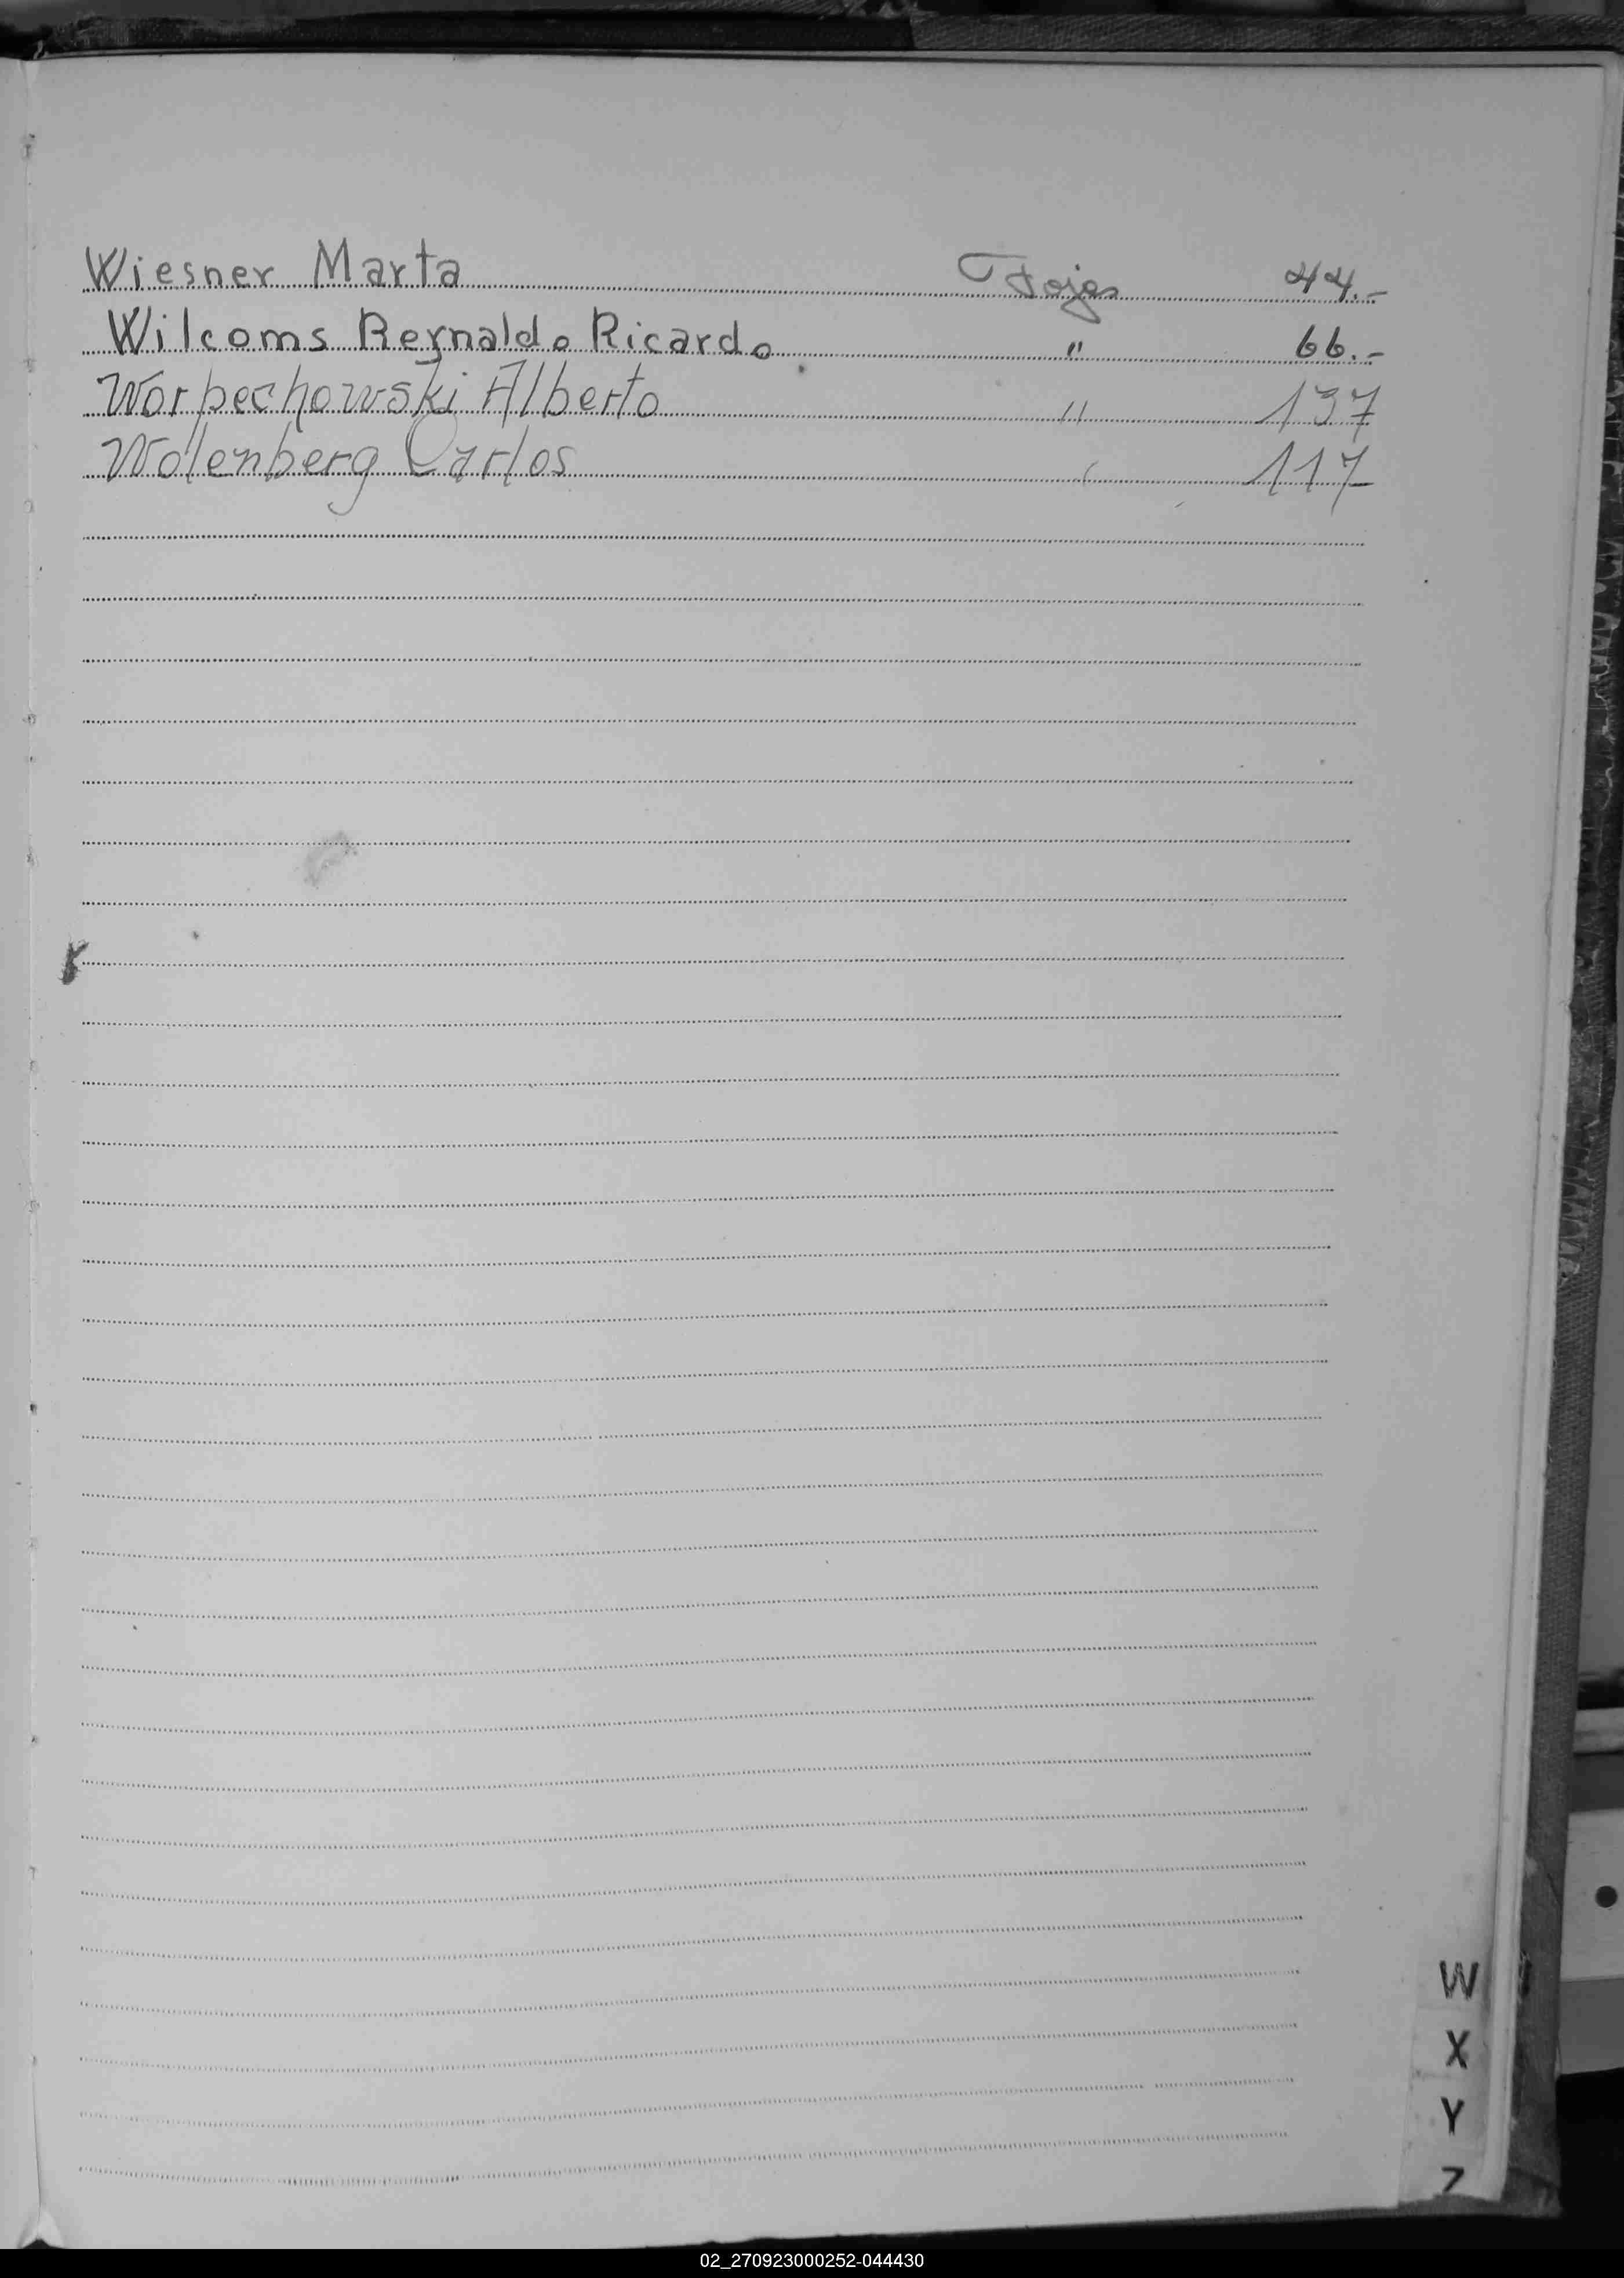 Wiesner Marta Fojas 44.-
Wilcoms Reynaldo Ricardo " 66.-
Worpechowski Alberto " 137
Wolenberg Carlos " 117
W
X
Y
Z
02_270923000252-044430